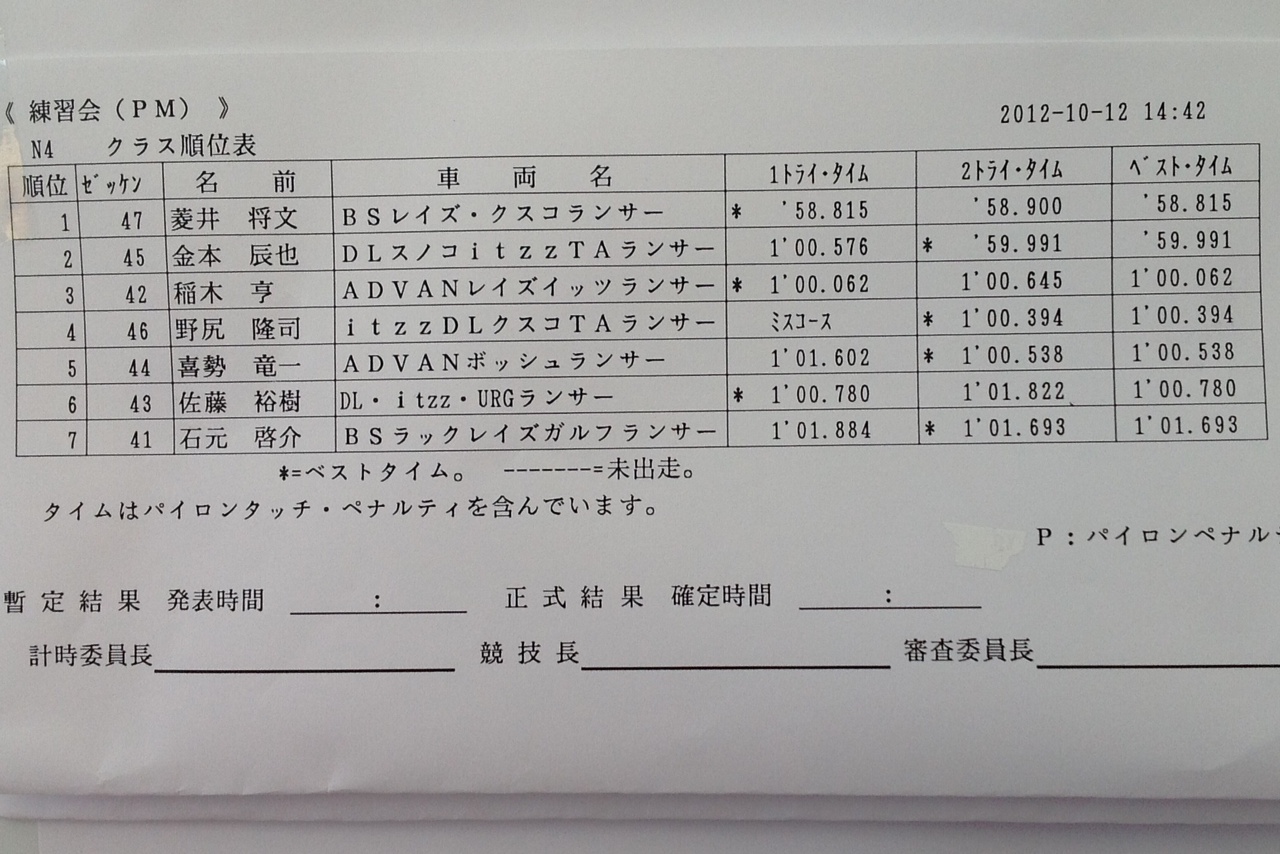 《 練習会（ＰＭ） 》 2012-10-12 14:42
N4 クラス順位表
順位 ｾﾞｯｹﾝ 名 前 車 両 名 1ﾄﾗｲ･ﾀｲﾑ 2ﾄﾗｲ･ﾀｲﾑ ﾍﾞｽﾄ･ﾀｲﾑ
1 47 菱井 将文 ＢＳレイズ・クスコランサー * '58.815 '58.900 '58.815
2 45 金本 辰也 ＤＬスノコｉｔｚｚＴＡランサー 1'00.576 * '59.991 '59.991
3 42 稲木 亨 ＡＤＶＡＮレイズイッツランサー * 1'00.062 1'00.645 1'00.062
4 46 野尻 隆司 ｉｔｚｚＤＬクスコＴＡランサー ﾐｽｺｰｽ * 1'00.394 1'00.394
5 44 喜勢 竜一 ＡＤＶＡＮボッシュランサー 1'01.602 * 1'00.538 1'00.538
6 43 佐藤 裕樹 DL・itzz・URGランサー * 1'00.780 1'01.822 1'00.780
7 41 石元 啓介 ＢＳラックレイズガルフランサー 1'01.884 * 1'01.693 1'01.693
*=ベストタイム。 -------=未出走。
タイムはパイロンタッチ・ペナルティを含んでいます。
Ｐ：パイロンペナル
暫 定 結 果 発表時間 ： 正 式 結 果 確定時間 ：
計時委員長 競 技 長 審査委員長